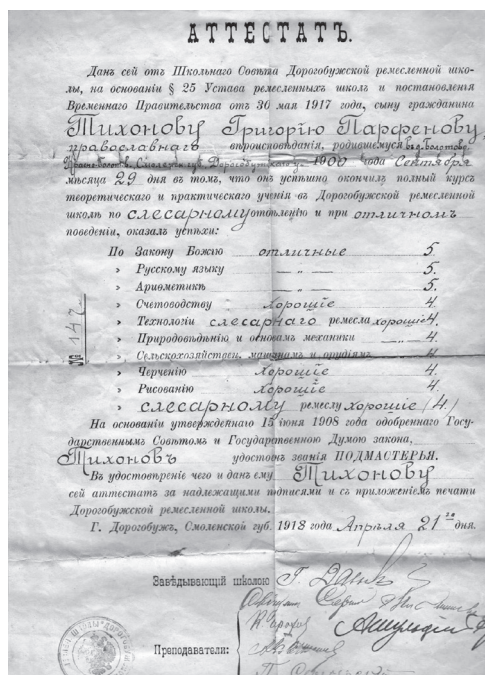 АТТЕСТАТЪ.
Данъ сей отъ Школьнаго Совѣта Дорогобужской ремесленной шко-
лы, на основаніи § 25 Устава ремесленныхъ школъ и постановленія
Временнаго Правительства отъ 30 мая 1917 года, сыну гражданина
Тихонову Григорію Парфенову
православнаго вѣроисповѣданія, родившемуся
Смоленск. губ. Дорогобужскаго у. 1900 года Сентября
мѣсяца 29 дня въ томъ, что онъ успѣшно окончилъ полный курсъ
теоретическаго и практическаго ученія въ Дорогобужской ремесленной
школѣ по слесарному отдѣленію и при отличномъ
поведеніи, оказалъ успѣхи:
По Закону Божію отличные 5.
» Русскому языку — „ — 5.
» Ариѳметикѣ — „ — 5.
» Счетоводству хорошіе 4.
» Технологіи слесарнаго ремесла хорошіе 4.
» Природовѣдѣнію и основамъ механики — „ — 4.
» Сельскохозяйствен. машинамъ и орудіямъ 4.
» Черченію хорошіе 4.
» Рисованію хорошіе 4.
» слесарному ремеслу хорошіе /4/.
№ 147
На основаніи утвержденнаго 15 іюня 1908 года одобреннаго Госу-
дарственнымъ Совѣтомъ и Государственною Думою закона,
Тихоновъ удостоенъ званія ПОДМАСТЕРЬЯ.
Въ удостовѣреніе чего и данъ ему Тихонову
сей аттестатъ за надлежащими подписями и съ приложеніемъ печати
Дорогобужской ремесленной школы.
Г. Дорогобужъ, Смоленской губ. 1918 года Апрѣля 21 го дня.
Завѣдывающій школою
Преподаватели: